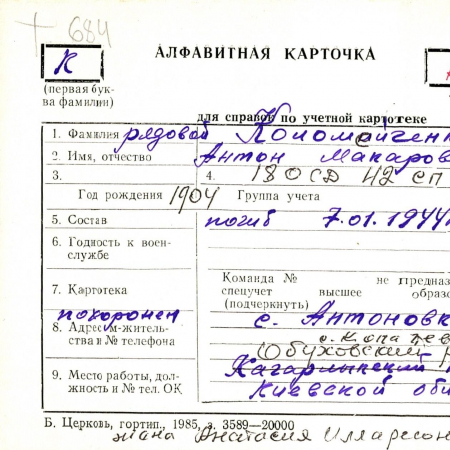 + 684
К
(первая бук-
ва фамилии)
АЛФАВИТНАЯ КАРТОЧКА
для справок по учетной картотеке
1. Фамилия рядовой Коломойчен
2. Имя, отчество Антон Макаров
3. Год рождения 1904
4. 180 СД 42 СП
Группа учета
5. Состав погиб 7.01.1944
6. Годность к воен-
службе
7. Картотека
Команда № не предназ
спецучет высшее образо
(подчеркнуть)
похоронен с. Антоновк
8. Адрес м-житель-
ства и № телефона
Обуховский р
9. Место работы, дол-
жность и № тел. ОК
Кагарлыкский
Киевской обл
Б. Церковь, гортип., 1985, з. 3589—20000
жена Анастасия Илларион